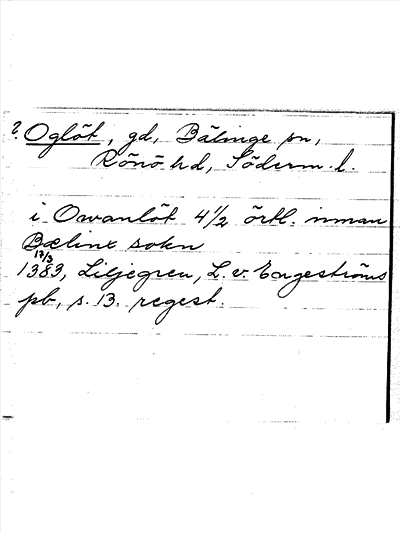 ? Oglöt, gd, Bälinge sn,
Rönö hd, Söderm. l.
i Owanlöt 4 1/2 örtl. innan
Bælinx sokn
17/3
1383, Liljegren, L. v. Engeströms
pb, s. 13. regest.